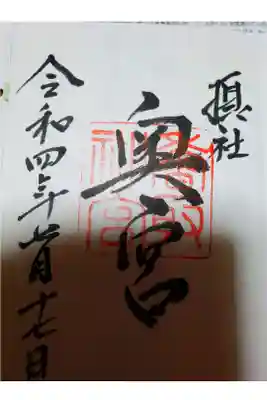 摂社
奥宮
令和四年 月十七日